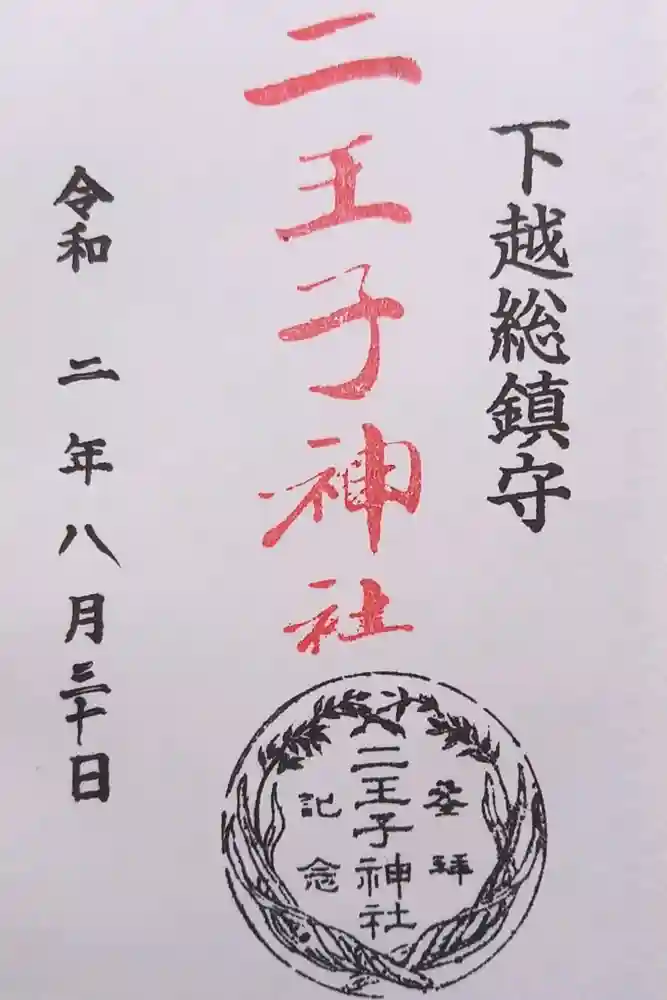 下越総鎮守
二王子神社
令和 二 年 八 月 三十 日
登拝
二王子神社
記念